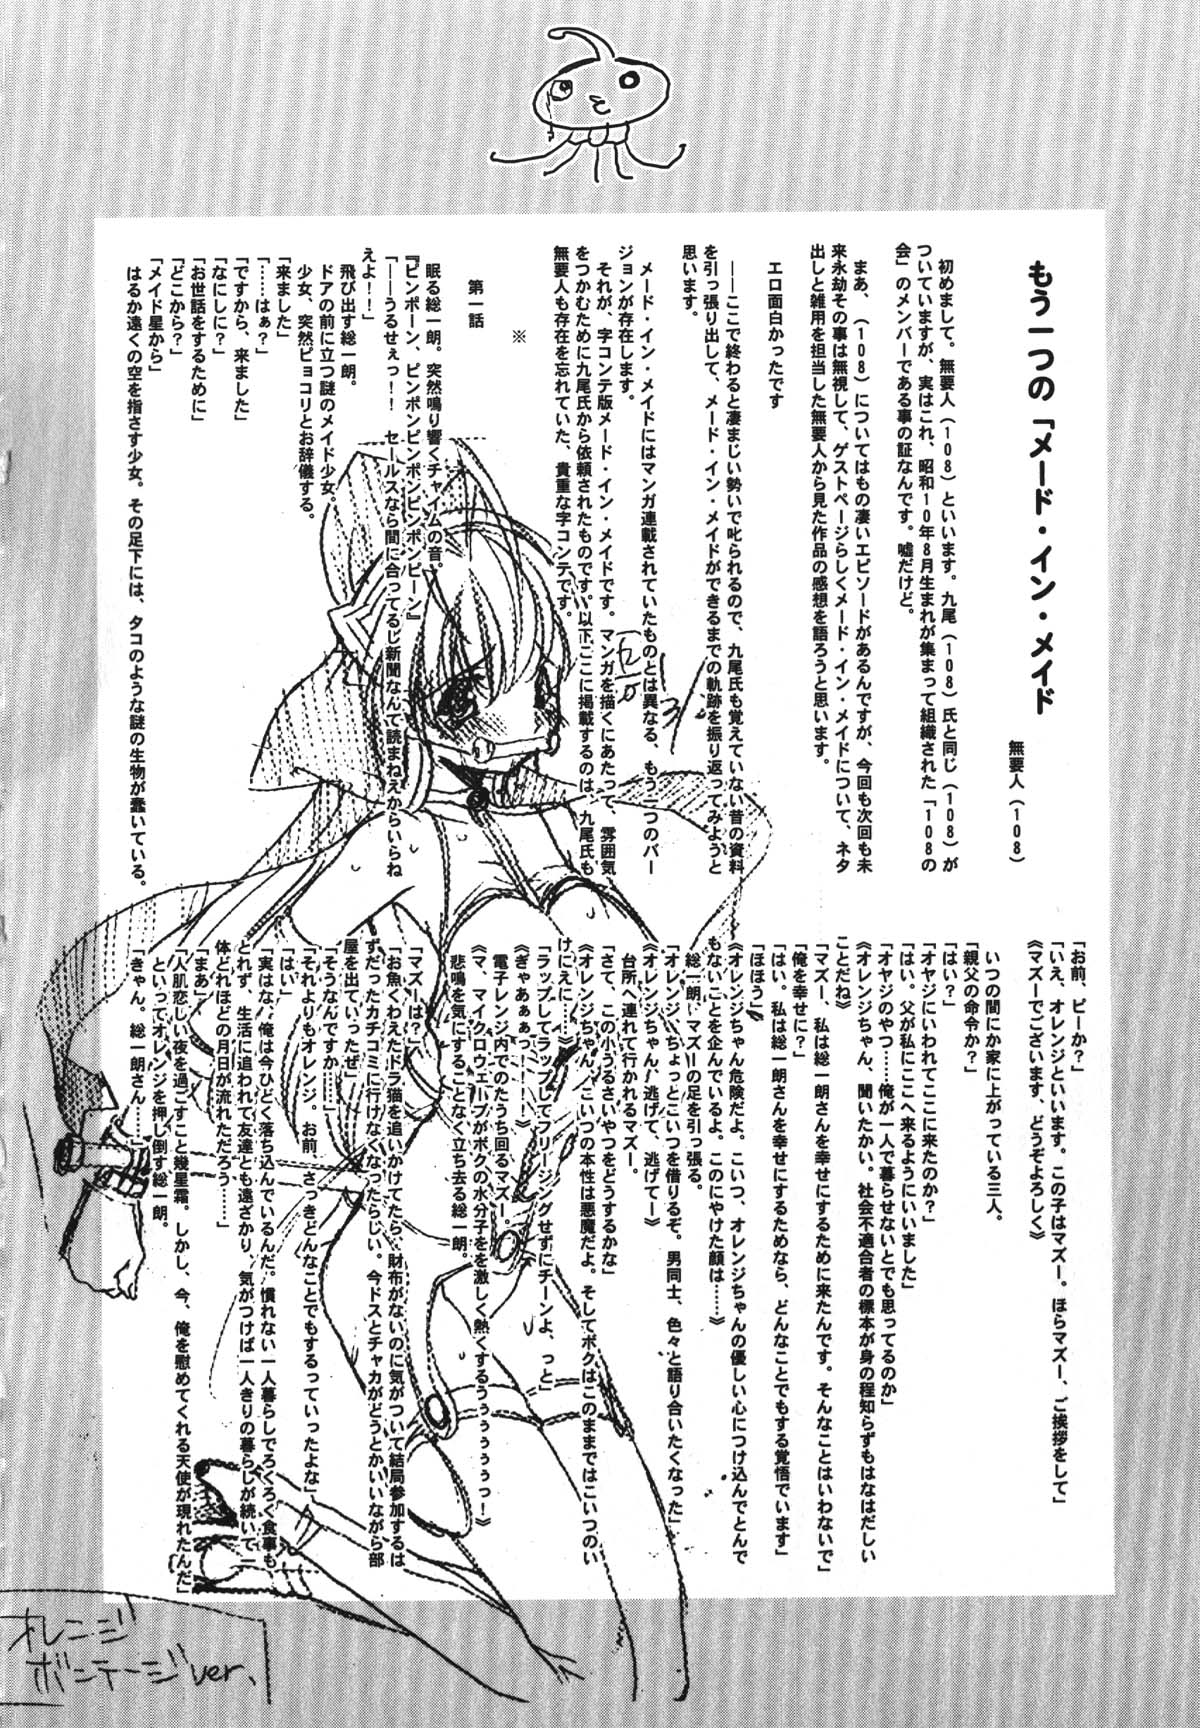 もう一つの「メード・イン・メイド
無要人（１０８）
初めまして。無要人（１０８）といいます。九尾（１０８）氏と同じ（１０８）が
ついていますが、実はこれ、昭和１０年８月生まれが集まって組織された「１０８の
会」のメンバーである事の証なんです。嘘だけど。
まあ、（１０８）についてはもの凄いエピソードがあるんですが、今回も次回も未
来永劫その事は無視して、ゲストページらしくメード・イン・メイドについて、ネタ
出しと雑用を担当した無要人から見た作品の感想を語ろうと思います。
エロ面白かったです
――ここで終わると凄まじい勢いで叱られるので、九尾氏も覚えていない昔の資料
を引っ張り出して、メード・イン・メイドができるまでの軌跡を振り返ってみようと
思います。
メード・イン・メイドにはマンガ連載されていたものとは異なる、もう一つのバー
ジョンが存在します。
それが、字コンテ版メード・イン・メイドです。マンガを描くにあたって、雰囲気
をつかむために九尾氏から依頼されたものです。以下、ここに掲載するのは、九尾氏も
無要人も存在を忘れていた、貴重な字コンテです。
※
第一話
眠る総一朗。突然鳴り響くチャイムの音。
『ピンポーン、ピンポンピンポンピンポンピーン』
「――うるせぇっ！！　セールスなら間に合ってるじ新聞なんて読まねえからいらね
えよ！！」
飛び出す総一朗。
ドアの前に立つ謎のメイド少女。
少女、突然ピョコリとお辞儀する。
「来ました」
「……はぁ？」
「ですから、来ました」
「なにしに？」
「お世話をするために」
「どこから？」
「メイド星から」
はるか遠くの空を指さす少女。その足下には、タコのような謎の生物が蠢いている。
「お前、ピーか？」
「いえ、オレンジといいます。この子はマズー。ほらマズー、ご挨拶をして」
《マズーでございます、どうぞよろしく》
いつの間にか家に上がっている三人。
「親父の命令か？」
「はい？」
「オヤジにいわれてここに来たのか？」
「はい。父が私にここへ来るようにいいました」
「オヤジのやつ……俺が一人で暮らせないとでも思ってるのか」
《オレンジちゃん、聞いたかい。社会不適合者の標本が身の程知らずもはなはだしい
ことだね》
「マズー、私は総一朗さんを幸せにするために来たんです。そんなことはいわないで」
「俺を幸せに？」
「はい。私は総一朗さんを幸せにするためなら、どんなことでもする覚悟でいます」
「ほほう」
《オレンジちゃん危険だよ。こいつ、オレンジちゃんの優しい心につけ込んでとんで
もないことを企んでいるよ。このにやけた顔は……》
総一朗、マズーの足を引っ張る。
「オレンジ、ちょっとこいつを借りるぞ。男同士、色々と語り合いたくなった」
《オレンジちゃん、逃げて、逃げてー》
台所へ連れて行かれるマズー。
「さて、この小うるさいやつをどうするかな」
《オレンジちゃん、こいつの本性は悪魔だよ。そしてボクはこのままではこいつのい
けにえに……》
「ラップしてラップしてフリージングせずにチーンよ、っと」
《ぎゃあぁぁっ！！！！》
電子レンジ内でのたうち回るマズー。
《マ、マイクロウェーブがボクの水分子をを激しく熱くするぅぅぅぅぅぅっ！》
悲鳴を気にすることなく立ち去る総一朗。
「マズーは？」
「お魚くわえたドラ猫を追いかけてたら、財布がないのに気がついて結局参加するは
ずだったカチコミに行けなくなったらしい。今ドスとチャカがどうとかいいながら部
屋を出ていったぜ」
「そうなんですか……」
「それよりもオレンジ。お前、さっきどんなことでもするっていったよな」
「はい」
「実はな、俺は今ひどく落ち込んでいるんだ。慣れない一人暮らしでろくろく食事も
とれず、生活に追われて友達とも遠ざかり、気がつけば一人きりの暮らしが続いて一
体どれほどの月日が流れただろう……」
「まあ」
「人肌恋しい夜を過ごすこと幾星霜。しかし、今、俺を慰めてくれる天使が現れたんだ」
といってオレンジを押し倒す総一朗。
「きゃん。総一朗さん……」
オレンジ
ボンテージver.